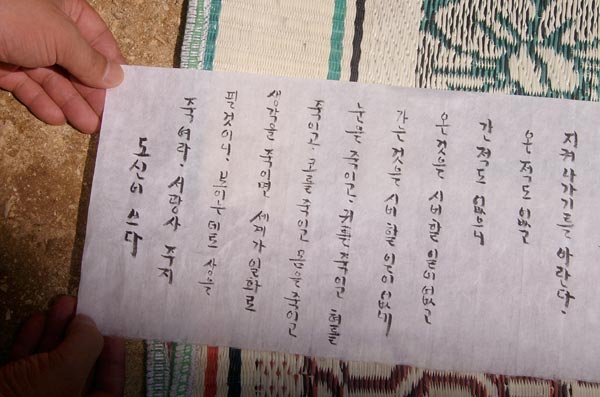 지켜 나가기를 바란다.
온 적도 없고
간 적도 없으니
온 것을 시비할 일이 없고
가는 것을 시비 할 일이 없네
눈을 죽이고, 귀를 죽이고 혀를
죽이고, 코를 죽이고 몸을 죽이고
생각을 죽이면 세계가 일화로
필 것이니, 보이는 데로 상을
죽여라. 서광사 주지
도신이 쓰다